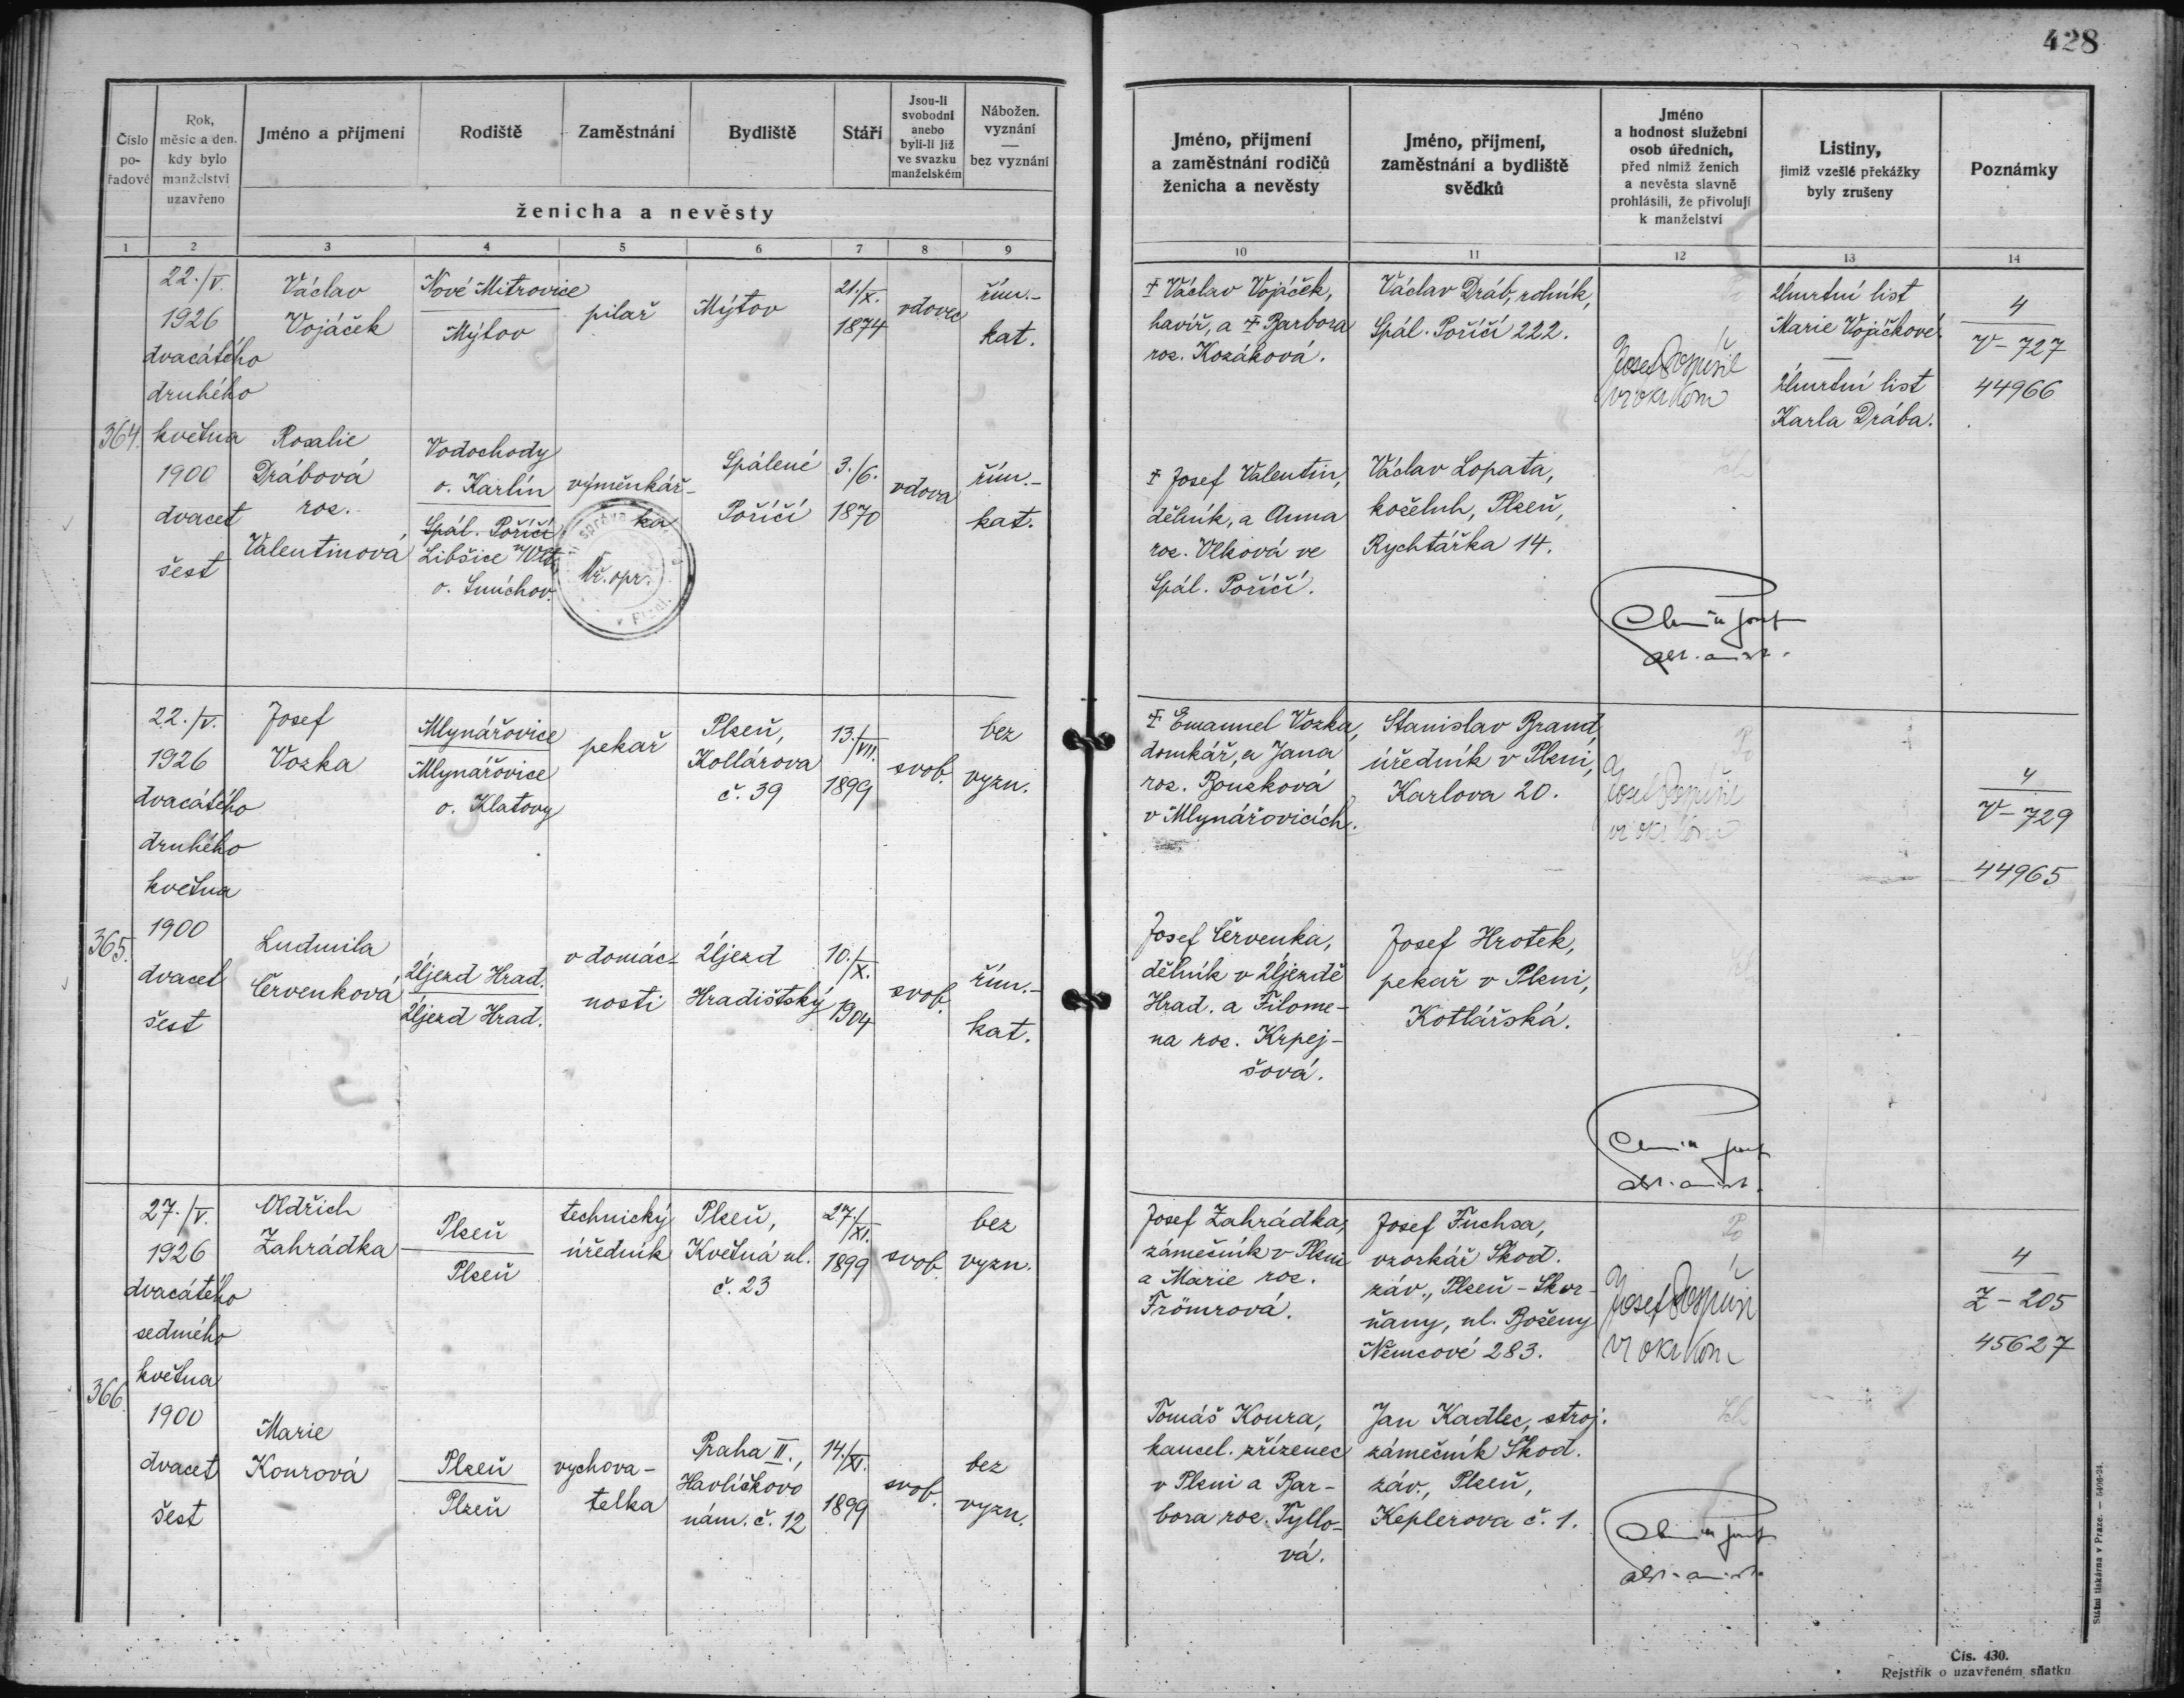 428
Číslo pořadové
Rok, měsíc a den. kdy bylo manželství uzavřeno
Jméno a příjmení
Rodiště
Zaměstnání
Bydliště
Stáří
Jsou-li svobodni anebo byli-li již ve svazku manželském
Nábožen. vyznání — bez vyznání
ženicha a nevěsty
Jméno, příjmení a zaměstnání rodičů ženicha a nevěsty
Jméno, příjmení, zaměstnání a bydliště svědků
Jméno a hodnost služební osob úředních, před nimiž ženich a nevěsta slavně prohlásili, že přivolují k manželství
Listiny, jimiž vzešlé překážky byly zrušeny
Poznámky
1 2 3 4 5 6 7 8 9 10 11 12 13 14
364.
22./V.
1926
dvacátého
druhého
května
1900
dvacet
šest
Václav
Vojáček
Nové Mitrovice
Mýtov
pilař
Mýtov
21./X.
1874
vdovec
řím.-
kat.
Rosalie
Drábová
roz.
Valentinová
Vodochody
o. Karlín
Spál. Poříčí
Libšice n/Vlt.
o. Smíchov.
výměnkář-
ka
Úř. opr.
Spálené
Poříčí
3./6.
1870
vdova
řím.-
kat.
† Václav Vojáček,
havíř, a † Barbora
roz. Kozáková.
Václav Dráb, rolník,
Spál. Poříčí 222.
Josef Pospíšil
vr okr kom
Úmrtní list
Marie Vojáčkové.
Úmrtní list
Karla Drába.
4
V-727
44966
† Josef Valentin,
dělník, a Anna
roz. Vlková ve
Spál. Poříčí.
Václav Lopata,
koželuh, Plzeň,
Rychtářka 14.
365.
22./V.
1926
dvacátého
druhého
května
1900
dvacet
šest
Josef
Vozka
Mlynářovice
Mlynářovice
o. Klatovy
pekař
Plzeň,
Kollárova
č. 39
13./VII.
1899
svob.
bez
vyzn.
Ludmila
Červenková
Újezd Hrad.
Újezd Hrad.
v domác-
nosti
Újezd
Hradištský
10./X.
1904
svob.
řím.-
kat.
† Emanuel Vozka,
domkář, a Jana
roz. Bousková
v Mlynářovicích.
Stanislav Brand,
úředník v Plzni,
Karlova 20.
Josef Pospíšil
vr okr kom
4
V-729
44965
Josef Červenka,
dělník v Újezdě
Hrad. a Filome-
na roz. Krpej-
šová.
Josef Hrotek,
pekař v Plzni,
Kotlářská.
366.
27./V.
1926
dvacátého
sedmého
května
1900
dvacet
šest
Oldřich
Zahrádka
Plzeň
Plzeň
technický
úředník
Plzeň,
Květná ul.
č. 23
27./XI.
1899
svob.
bez
vyzn.
Marie
Kourová
Plzeň
Plzeň
vychova-
telka
Praha II.,
Havlíčkovo
nám. č. 12
14./XI.
1899
svob.
bez
vyzn.
Josef Zahrádka,
zámečník v Plzni
a Marie roz.
Frömrová.
Josef Fuchsa,
vzorkář Škod.
záv., Plzeň-Skvr-
ňany, ul. Boženy
Němcové 283.
Josef Pospíšil
vr okr kom
4
Z-205
45627
Tomáš Koura,
kancel. zřízenec
v Plzni a Bar-
bora roz. Tyllo-
vá.
Jan Kadlec, stroj.
zámečník Škod.
záv., Plzeň,
Keplerova č. 1.
Státní tiskárna v Praze. — 5496-24.
Čís. 430.
Rejstřík o uzavřeném sňatku